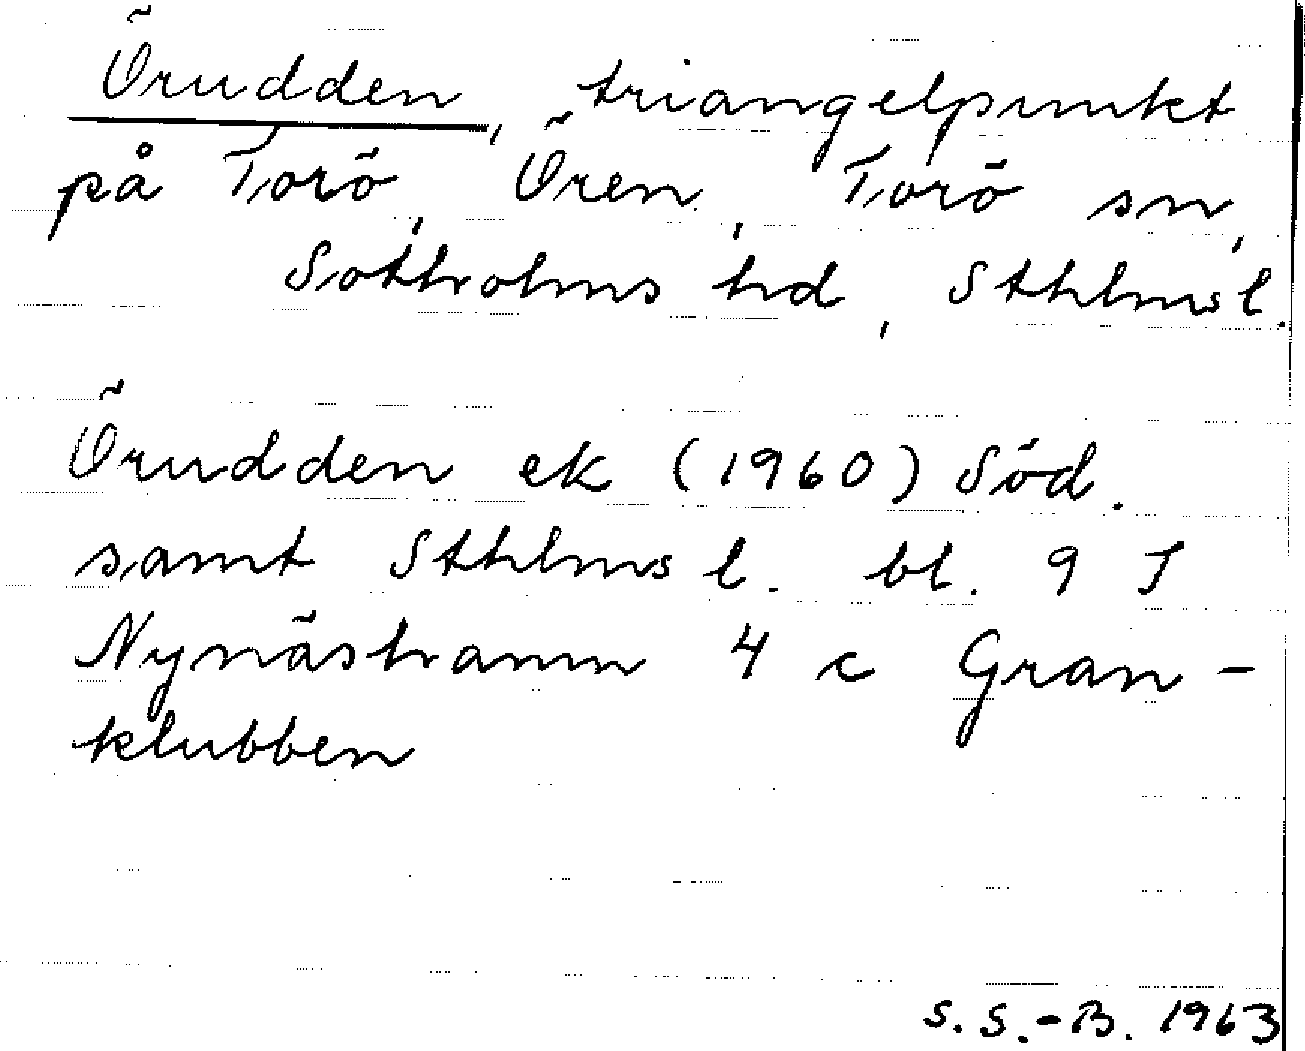 Örudden, triangelpunkt
på Torö, Ören, Torö sn,
Sotholms hd, Sthlms l.
Örudden ek (1960) Söd.
samt Sthlms l. bl. 9 I
Nynäshamn 4 c Gran-
klubben
S. S.-B. 1963